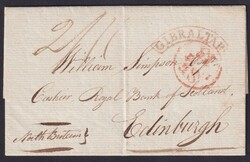 2/11
GIBRALTAR
William Simpson Esq
Cashier Royal Bank of Scotland
North Britain}
Edinburgh